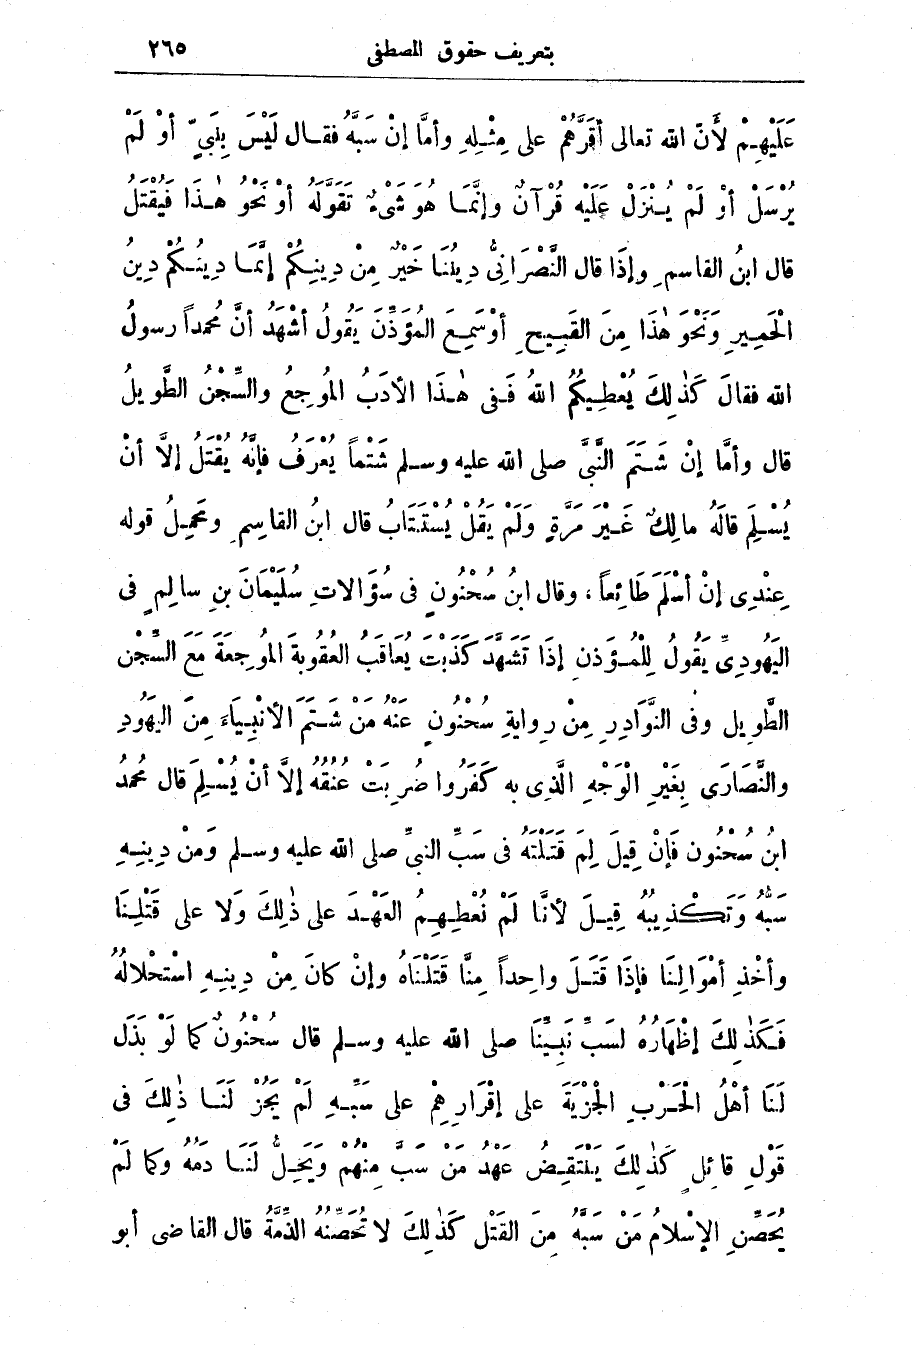 بتعريف حقوق المصطفى ٢٦٥
عَلَيْهِمْ لأَنّ الله تعالى أقَرَّهُمْ على مِثْلِهِ وأمَّا إنْ سَبَّهُ فقال لَيْسَ بِنَبِيّ أوْ لَمْ
يُرْسَلْ أوْ لَمْ يُنْزَلْ عَلَيْهِ قُرْآنٌ وإنَّمَا هُوَ شَىْءٌ تَقَوَّلَهُ أوْ نَحْوُ هٰذَا فَيُقْتَلُ
قال ابنُ القاسمِ وإذَا قال النَّصْرَانِىُّ دِينُنَا خَيْرٌ مِنْ دِينِكُمْ إنَّمَا دِينُكُمْ دِينُ
الْحَمِيرِ وَنَحْوَ هٰذَا مِنَ القَبِيحِ أوْ سَمِعَ المُؤَذِّنَ يَقُولُ أشْهَدُ أنَّ مُحمداً رسولُ
الله فقالَ كَذٰلِكَ يُعْطِيكُمُ اللهُ فَفى هٰذَا الأدَبُ المُوجِعُ والسِّجْنُ الطَّوِيلُ
قال وأمَّا إنْ شَتَمَ النَّبِىَّ صلى الله عليه وسلم شَتْماً يُعْرَفُ فإنَّهُ يُقْتَلُ إلاَّ أنْ
يُسْلِمَ قالَهُ مالِكٌ غَيْرَ مَرَّةٍ وَلَمْ يَقُلْ يُسْتَتَابُ قال ابنُ القاسِمِ ومَحْمِلُ قوله
عِنْدِى إنْ أسْلَمَ طَائِعاً، وقال ابنُ سُحْنُونٍ فى سُؤَالاتِ سُلَيْمَانَ بنِ سالِمٍ فى
اليَهُودِىِّ يَقُولُ لِلْمُؤَذنِ إذَا تَشَهَّدَ كَذَبْتَ يُعَاقَبُ العُقُوبةَ المُوجعَةَ مَعَ السِّجْنِ
الطَّوِيلِ وفى النَّوَادِرِ مِنْ رِوايةِ سُحْنُونٍ عَنْهُ مَنْ شَتَمَ الأنْبِيَاءَ مِنَ اليَهُودِ
والنَّصَارَى بِغَيْرِ الْوَجْهِ الَّذِى به كَفَرُوا ضُرِبَتْ عُنُقُهُ إلاَّ أنْ يُسْلِمَ قال مُحمدُ
ابنُ سُحْنُونٍ فَإنْ قِيلَ لِمَ قَتَلْتَهُ فى سَبِّ النبىِّ صلى الله عليه وسلم وَمِنْ دِينِهِ
سَبُّهُ وَتَكْذِيبُهُ قِيلَ لأنَّا لَمْ نُعْطِهِمُ العَهْدَ على ذٰلِكَ وَلا على قَتْلِنَا
وأخْذِ أمْوَالِنَا فإذَا قَتَلَ واحِداً مِنَّا قَتَلْنَاهُ وإنْ كانَ مِنْ دِينِهِ اسْتحْلالُهُ
فَكَذٰلِكَ إظْهَارُهُ لسَبِّ نَبِيِّنَا صلى الله عليه وسلم قال سُحْنُونٌ كما لَوْ بَذَلَ
لَنَا أهْلُ الْحَرْبِ الْجِزْيَةَ على إقْرَارِهِمْ على سَبِّهِ لَمْ يَجُزْ لَنَا ذٰلِكَ فى
قَوْلِ قائِلٍ كَذٰلِكَ يَنْتَقِضُ عَهْدُ مَنْ سَبَّ مِنْهُمْ وَيَحِلُّ لَنَا دَمُهُ وكما لَمْ
يُحَصِّنِ الإسْلامُ مَنْ سَبَّهُ مِنَ القَتْلِ كَذٰلِكَ لا تُحَصِّنُهُ الذِّمَّةُ قال القاضى أبو